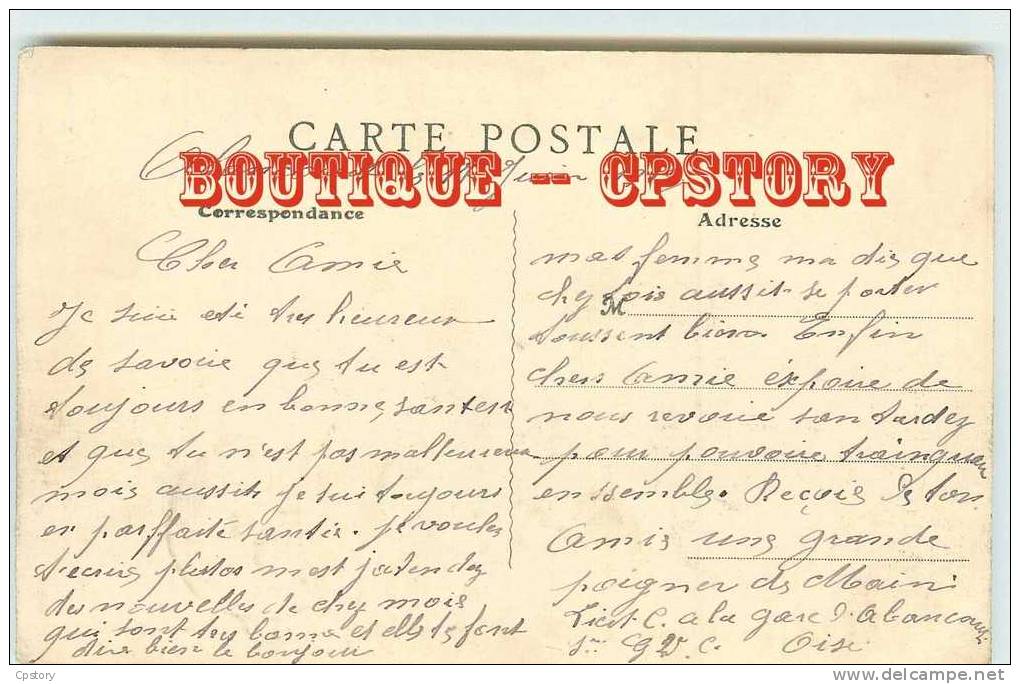 CARTE POSTALE
BOUTIQUE -- CPSTORY
Juin
Correspondance
Cher Amie
Je suie eté tres heureux
de savoire que tu est
toujours en bonne santer
et que tu n'est pas malheureux
mois aussit je sui toujours
en parffaite santée. je voulez
t'ecrire plutos mest jatendez
des nouvelles de chez mois
qui sont tres bonne et elle te font
dire bien le bonjour
Adresse
M
mas femme ma dis que
chez tois aussit se porter
toussent bien Enfin
cher Amie éspoire de
nous revoire san tardez
pour pouvoire trainquer
enssemble. Reçois de ton
Amie une grande
poigner de Main
a la gare d'Abancourt
G V C. Oise
Cpstory
http://www.delcampe.net